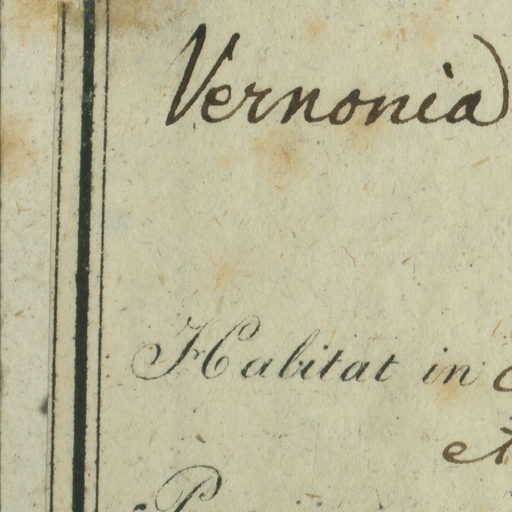 Vernonia
Habitat in
et